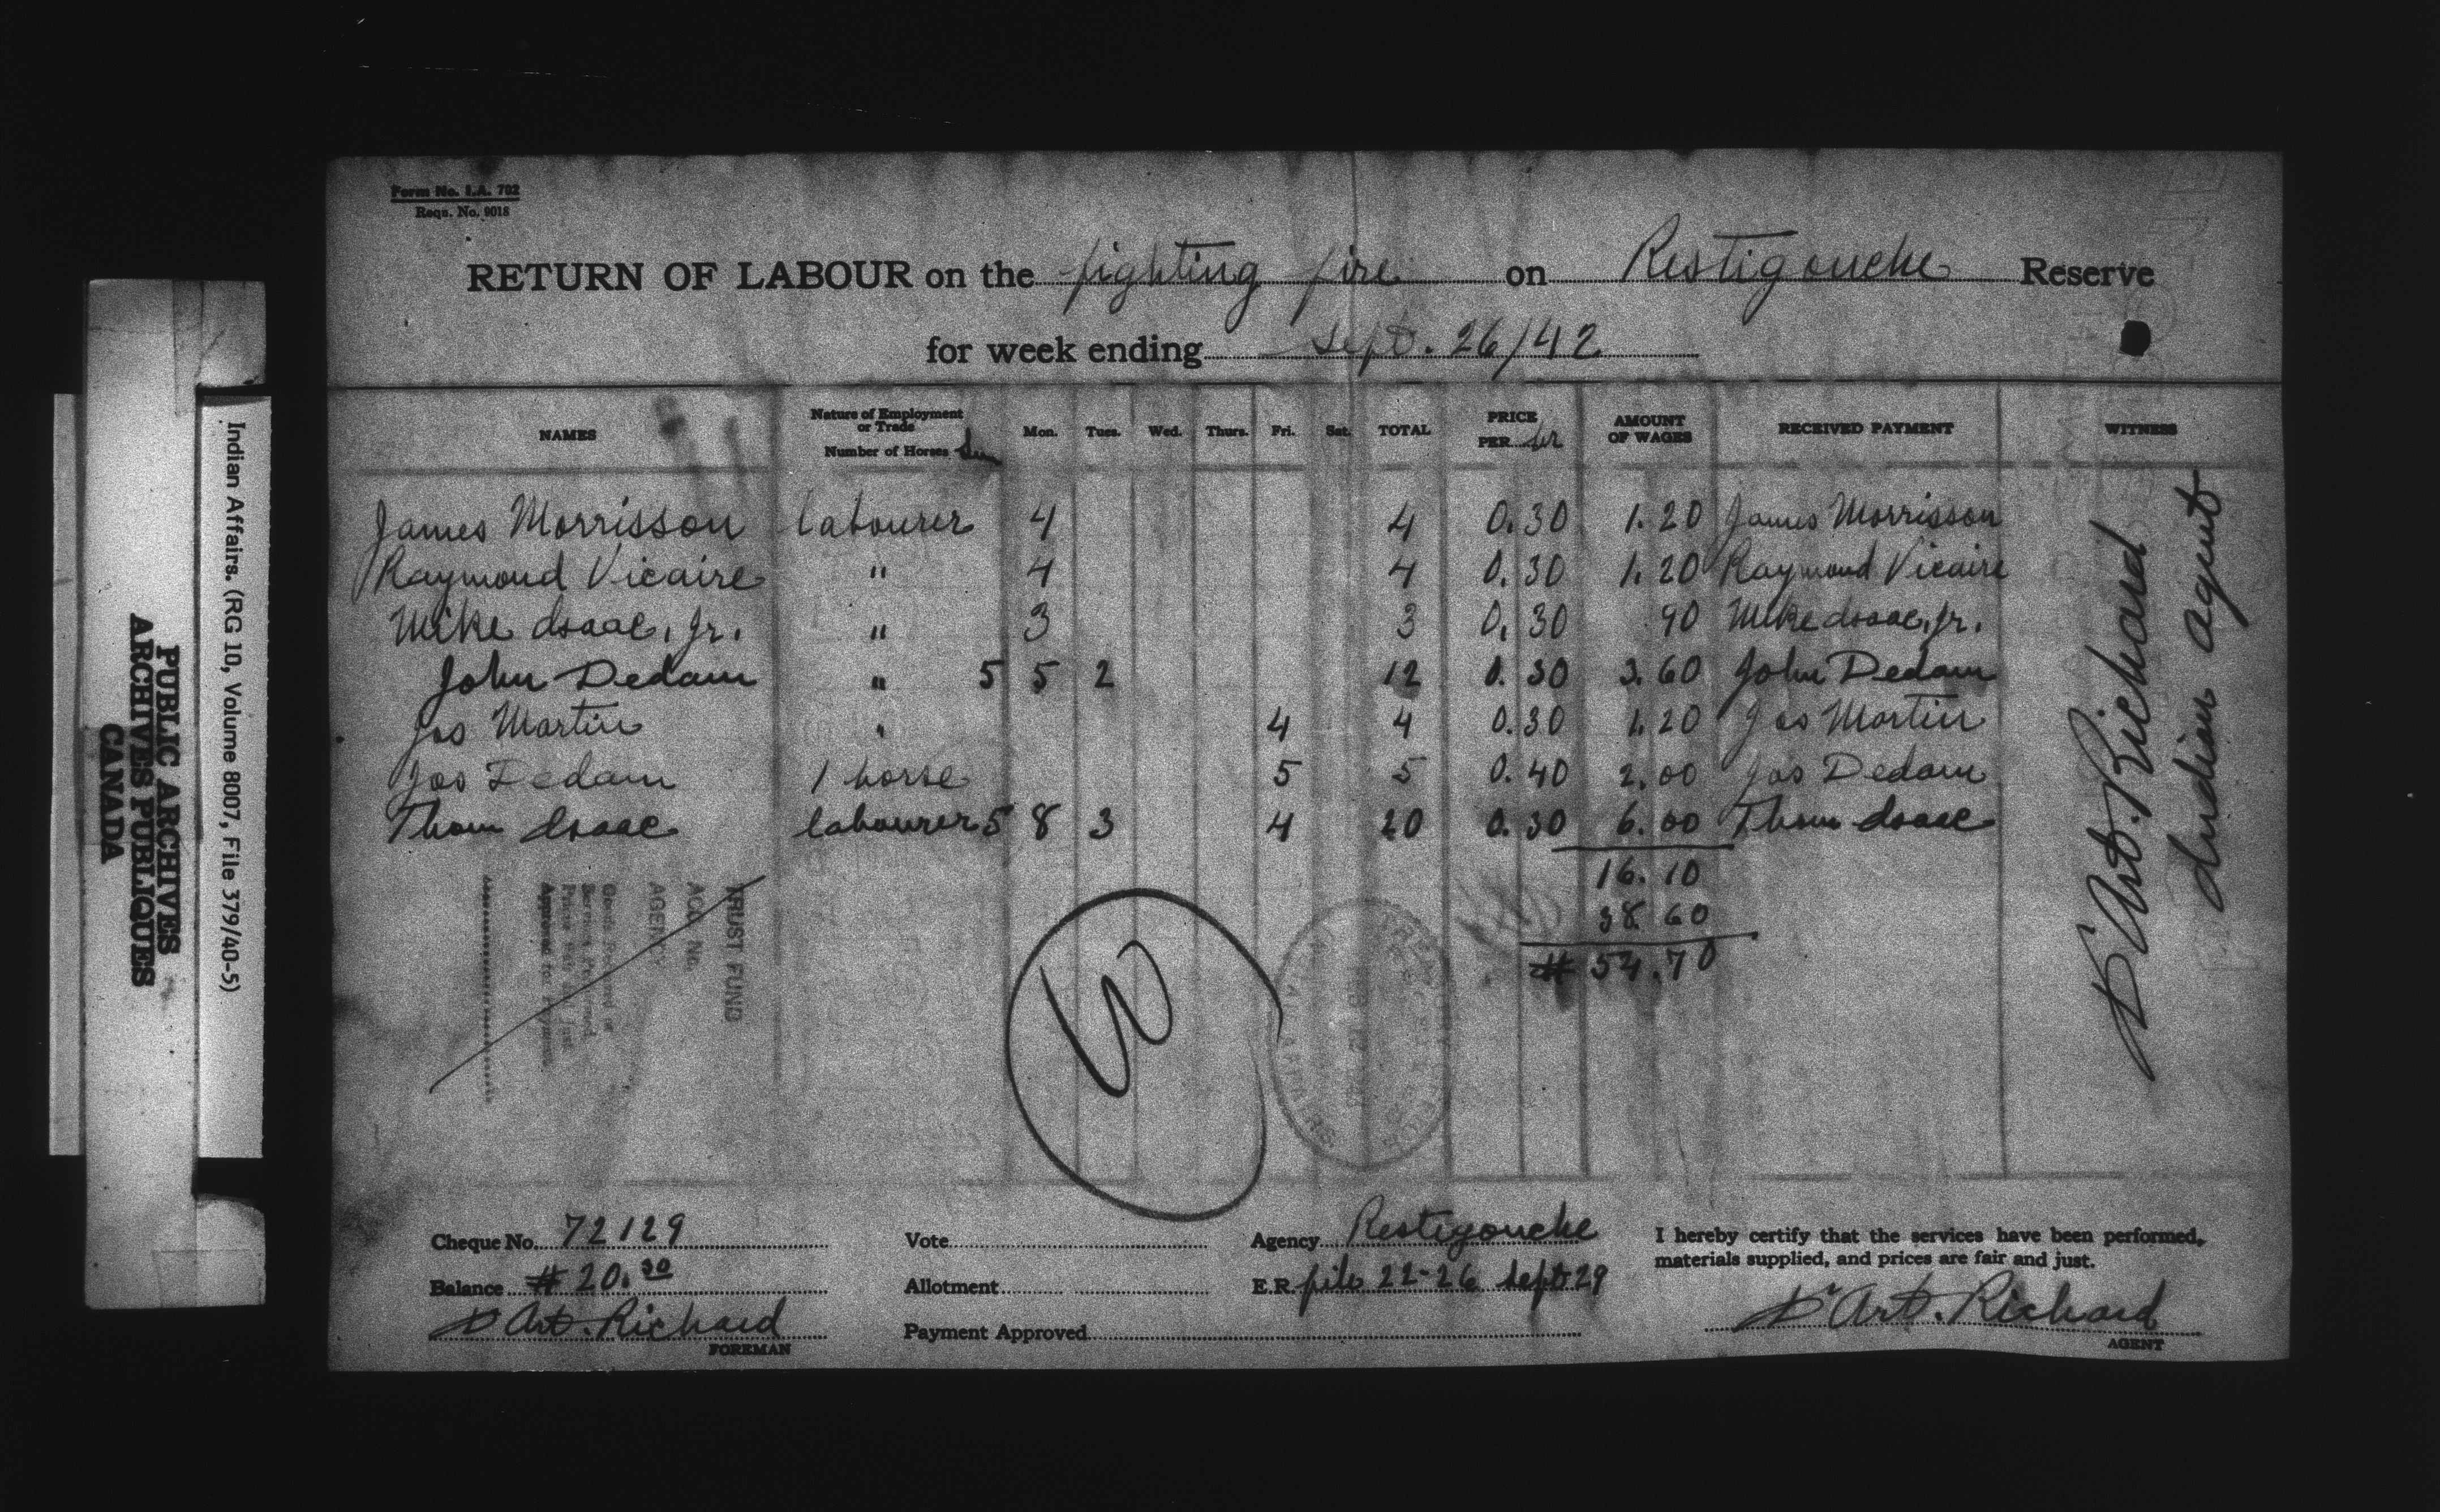 Form No. I.A. 702
Reqn. No. 9018
RETURN OF LABOUR on the fighting fire on Restigouche Reserve
for week ending Sept. 26/42
NAMES Nature of Employment or Trade Number of Horses Sun Mon. Tues. Wed. Thurs. Fri. Sat. TOTAL PRICE PER hr AMOUNT OF WAGES RECEIVED PAYMENT WITNESS
James Morrisson labourer 4 4 0.30 1.20 James Morrisson
Raymond Vicaire " 4 4 0.30 1.20 Raymond Vicaire
Mike Isaac, Jr. " 3 3 0.30 90 Mike Isaac, Jr.
John Dedam " 5 5 2 12 0.30 3.60 John Dedam
Jos Martin " 4 4 0.30 1.20 Jos Martin
Jos Dedam 1 horse 5 5 0.40 2.00 Jos Dedam
Thom Isaac labourer 5 8 3 4 20 0.30 6.00 Thom Isaac
16.10
38.60
$ 54.70
Dr Art. Richard
Indian agent
TRUST FUND
ACC. NO.
AGENCY
Approved for Payment
W
Cheque No. 72129
Balance $ 20.30
Dr Art. Richard
FOREMAN
Vote
Allotment
Payment Approved
Agency Restigouche
E.R. file 22-26 Sept 29
I hereby certify that the services have been performed,
materials supplied, and prices are fair and just.
Dr Art. Richard
AGENT
Indian Affairs. (RG 10, Volume 8007, File 379/40-5)
PUBLIC ARCHIVES
ARCHIVES PUBLIQUES
CANADA